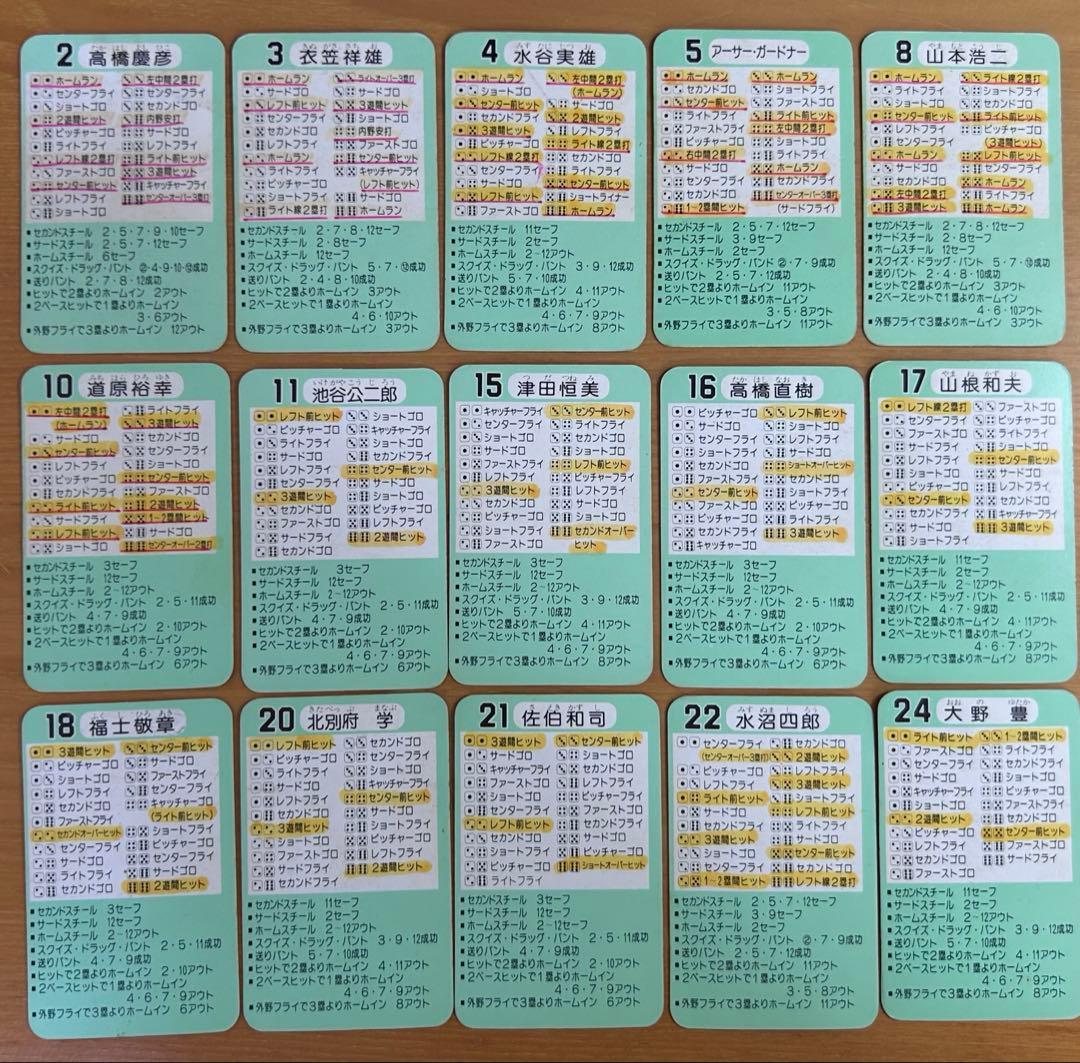 2 高橋慶彦
ホームラン 左中間2塁打
センターフライ センターフライ
ショートゴロ ショートフライ
2塁間ヒット 内野安打
ピッチャーゴロ サードゴロ
ライトフライ レフトフライ
レフト線2塁打 ライト前ヒット
ファーストゴロ 3遊間ヒット
センター前ヒット キャッチャーフライ
レフトフライ センターオーバー3塁打
ショートゴロ
■セカンドスチール 2・5・7・9・10セーフ
■サードスチール 2・5・7・12セーフ
■ホームスチール 6セーフ
■スクイズ・ドラッグ・バント ②・4・9・10・⑫成功
■送りバント 2・7・8・12成功
■ヒットで2塁よりホームイン 2アウト
■2ベースヒットで1塁よりホームイン
3・6アウト
■外野フライで3塁よりホームイン 12アウト
3 衣笠祥雄
ホームラン ライトオーバー3塁打
サードゴロ サードゴロ
レフト前ヒット 3遊間ヒット
センターフライ ショートゴロ
セカンドゴロ 内野安打
レフトフライ ファーストゴロ
ホームラン センター前ヒット
ライトフライ キャッチャーフライ
ピッチャーゴロ (レフト前ヒット)
ショートゴロ サードゴロ
ライト線2塁打 ホームラン
■セカンドスチール 2・7・8・12セーフ
■サードスチール 2・8セーフ
■ホームスチール 12セーフ
■スクイズ・ドラッグ・バント 5・7・⑫成功
■送りバント 2・4・8・10成功
■ヒットで2塁よりホームイン 3アウト
■2ベースヒットで1塁よりホームイン
4・6・10アウト
■外野フライで3塁よりホームイン 3アウト
4 水谷実雄
ホームラン 左中間2塁打
ショートゴロ (ホームラン)
センター前ヒット サードゴロ
サードゴロ 2遊間ヒット
3遊間ヒット レフトフライ
セカンドフライ ライト線2塁打
レフト線2塁打 セカンドゴロ
センターフライ ライトフライ
サードゴロ センター前ヒット
レフト前ヒット ショートライナー
ファーストゴロ ホームラン
■セカンドスチール 11セーフ
■サードスチール 2セーフ
■ホームスチール 2~12アウト
■スクイズ・ドラッグ・バント 3・9・12成功
■送りバント 5・7・10成功
■ヒットで2塁よりホームイン 4・11アウト
■2ベースヒットで1塁よりホームイン
4・6・7・9アウト
■外野フライで3塁よりホームイン 8アウト
5 アーサー・ガードナー
ホームラン ホームラン
セカンドゴロ ショートフライ
センター前ヒット ファーストゴロ
ライトフライ ライト前ヒット
ファーストフライ 左中間2塁打
レフトフライ ショートゴロ
右中間2塁打 ライトフライ
サードゴロ ホームラン
センターフライ セカンドフライ
ショートゴロ センターオーバー3塁打
1~2塁間ヒット (サードフライ)
■セカンドスチール 2・5・7・12セーフ
■サードスチール 3・9セーフ
■ホームスチール 2セーフ
■スクイズ・ドラッグ・バント ②・7・9成功
■送りバント 2・5・7・12成功
■ヒットで2塁よりホームイン 11アウト
■2ベースヒットで1塁よりホームイン
3・5・8アウト
■外野フライで3塁よりホームイン 11アウト
8 山本浩二
ホームラン ライト線2塁打
ショートゴロ レフトフライ
サードゴロ ショートゴロ
センター前ヒット ライト前ヒット
レフトフライ ピッチャーゴロ
ライトフライ (3遊間ヒット)
ホームラン レフト前ヒット
サードゴロ センターフライ
セカンドゴロ ホームラン
左中間2塁打 サードゴロ
3遊間ヒット ホームラン
■セカンドスチール 2・7・8・12セーフ
■サードスチール 2・8セーフ
■ホームスチール 12セーフ
■スクイズ・ドラッグ・バント 5・7・⑫成功
■送りバント 2・4・8・10成功
■ヒットで2塁よりホームイン 3アウト
■2ベースヒットで1塁よりホームイン
4・6・10アウト
■外野フライで3塁よりホームイン 3アウト
10 道原裕幸
左中間2塁打 ライトフライ
(ホームラン) 3遊間ヒット
サードゴロ セカンドゴロ
センター前ヒット センターフライ
レフトフライ ショートゴロ
ピッチャーゴロ センター前ヒット
セカンドフライ ファーストゴロ
ライト前ヒット 2遊間ヒット
サードフライ 1~2塁間ヒット
レフト前ヒット サードゴロ
ショートゴロ センターオーバー2塁打
■セカンドスチール 3セーフ
■サードスチール 12セーフ
■ホームスチール 2~12アウト
■スクイズ・ドラッグ・バント 2・5・11成功
■送りバント 4・7・9成功
■ヒットで2塁よりホームイン 2・10アウト
■2ベースヒットで1塁よりホームイン
4・6・7・9アウト
■外野フライで3塁よりホームイン 6アウト
11 池谷公二郎
レフト前ヒット ショートゴロ
ピッチャーゴロ キャッチャーフライ
ライトフライ ショートフライ
サードゴロ セカンドゴロ
レフトフライ センター前ヒット
センターフライ サードゴロ
3遊間ヒット ショートゴロ
セカンドゴロ セカンドフライ
ファーストゴロ レフトフライ
サードフライ 2遊間ヒット
セカンドゴロ
■セカンドスチール 3セーフ
■サードスチール 12セーフ
■ホームスチール 2~12アウト
■スクイズ・ドラッグ・バント 2・5・11成功
■送りバント 4・7・9成功
■ヒットで2塁よりホームイン 2・10アウト
■2ベースヒットで1塁よりホームイン
4・6・7・9アウト
■外野フライで3塁よりホームイン 6アウト
15 津田恒美
キャッチャーフライ センター前ヒット
センターフライ ライトフライ
ショートゴロ セカンドゴロ
サードゴロ ショートフライ
ファーストフライ レフト前ヒット
レフトフライ ピッチャーゴロ
3遊間ヒット レフトフライ
セカンドゴロ サードゴロ
ピッチャーゴロ ショートゴロ
ショートフライ セカンドオーバー
ファーストゴロ ヒット
■セカンドスチール 3セーフ
■サードスチール 12セーフ
■ホームスチール 2~12アウト
■スクイズ・ドラッグ・バント 3・9・12成功
■送りバント 5・7・10成功
■ヒットで2塁よりホームイン 4・11アウト
■2ベースヒットで1塁よりホームイン
4・6・7・9アウト
■外野フライで3塁よりホームイン 8アウト
16 高橋直樹
ピッチャーゴロ レフト前ヒット
センターフライ サードゴロ
ショートゴロ センターフライ
サードゴロ セカンドフライ
セカンドゴロ ショートオーバーヒット
レフトフライ サードゴロ
センター前ヒット ショートフライ
ファーストゴロ セカンドゴロ
ピッチャーゴロ ライトフライ
セカンドフライ 3遊間ヒット
キャッチャーゴロ
■セカンドスチール 3セーフ
■サードスチール 12セーフ
■ホームスチール 2~12アウト
■スクイズ・ドラッグ・バント 2・5・11成功
■送りバント 4・7・9成功
■ヒットで2塁よりホームイン 2・10アウト
■2ベースヒットで1塁よりホームイン
4・6・7・9アウト
■外野フライで3塁よりホームイン 6アウト
17 山根和夫
レフト線2塁打 ファーストゴロ
センターフライ セカンドフライ
ファーストゴロ サードゴロ
サードフライ ショートゴロ
レフトフライ センター前ヒット
ショートゴロ ピッチャーゴロ
センター前ヒット サードゴロ
セカンドゴロ レフトフライ
ライトフライ ショートフライ
サードゴロ 3遊間ヒット
セカンドゴロ
■セカンドスチール 11セーフ
■サードスチール 2セーフ
■ホームスチール 2~12アウト
■スクイズ・ドラッグ・バント 2・5・11成功
■送りバント 4・7・9成功
■ヒットで2塁よりホームイン 4・11アウト
■2ベースヒットで1塁よりホームイン
4・6・7・9アウト
■外野フライで3塁よりホームイン 8アウト
18 福士敬章
3遊間ヒット センター前ヒット
ピッチャーゴロ サードゴロ
ショートゴロ ファーストフライ
レフトフライ ショートゴロ
セカンドゴロ キャッチャーゴロ
ファーストフライ (ライト前ヒット)
セカンドオーバーヒット ショートフライ
ショートゴロ ピッチャーゴロ
サードゴロ センターフライ
ライトフライ サードゴロ
セカンドゴロ 2遊間ヒット
■セカンドスチール 3セーフ
■サードスチール 12セーフ
■ホームスチール 2~12アウト
■スクイズ・ドラッグ・バント 2・5・11成功
■送りバント 4・7・9成功
■ヒットで2塁よりホームイン 2・10アウト
■2ベースヒットで1塁よりホームイン
4・6・7・9アウト
■外野フライで3塁よりホームイン 6アウト
20 北別府 学
レフト前ヒット セカンドゴロ
センターフライ サードフライ
ライトフライ ショートゴロ
サードゴロ キャッチャーフライ
レフトフライ センター前ヒット
セカンドゴロ サードゴロ
3遊間ヒット ショートフライ
ショートゴロ ピッチャーゴロ
ファーストゴロ レフトフライ
サードフライ 2遊間ヒット
センターフライ
■セカンドスチール 11セーフ
■サードスチール 2セーフ
■ホームスチール 2~12アウト
■スクイズ・ドラッグ・バント 3・9・12成功
■送りバント 5・7・10成功
■ヒットで2塁よりホームイン 4・11アウト
■2ベースヒットで1塁よりホームイン
4・6・7・9アウト
■外野フライで3塁よりホームイン 8アウト
21 佐伯和司
3遊間ヒット センター前ヒット
サードゴロ セカンドゴロ
キャッチャーフライ レフトフライ
ファーストゴロ ショートゴロ
ショートゴロ ピッチャーフライ
センターフライ ファーストゴロ
レフト前ヒット サードフライ
セカンドゴロ センターフライ
ショートフライ セカンドゴロ
ピッチャーゴロ ショートオーバーヒット
ライトフライ
■セカンドスチール 3セーフ
■サードスチール 12セーフ
■ホームスチール 2~12セーフ
■スクイズ・ドラッグ・バント 2・5・11成功
■送りバント 4・7・9成功
■ヒットで2塁よりホームイン 2・10アウト
■2ベースヒットで1塁よりホームイン
4・6・7・9アウト
■外野フライで3塁よりホームイン 6アウト
22 水沼四郎
センターフライ セカンドゴロ
(センターオーバー3塁打) 2遊間ヒット
ピッチャーゴロ レフトフライ
レフトフライ 3遊間ヒット
ライト前ヒット ショートゴロ
サードゴロ レフト前ヒット
セカンドフライ ライトフライ
3遊間ヒット サードゴロ
ショートゴロ センター前ヒット
センターフライ セカンドゴロ
1~2塁間ヒット レフト線2塁打
■セカンドスチール 2・5・7・12セーフ
■サードスチール 3・9セーフ
■ホームスチール 2セーフ
■スクイズ・ドラッグ・バント ②・7・9成功
■送りバント 2・5・7・12成功
■ヒットで2塁よりホームイン 11アウト
■2ベースヒットで1塁よりホームイン
3・5・8アウト
■外野フライで3塁よりホームイン 11アウト
24 大野 豊
ライト前ヒット 1~2塁間ヒット
ファーストゴロ ライトフライ
サードゴロ センターフライ
キャッチャーフライ セカンドゴロ
ショートゴロ ピッチャーゴロ
レフトフライ ファーストフライ
2遊間ヒット ショートゴロ
ピッチャーゴロ センター前ヒット
センターフライ ファーストゴロ
セカンドゴロ サードフライ
ファーストゴロ
■セカンドスチール 11セーフ
■サードスチール 2セーフ
■ホームスチール 2~12アウト
■スクイズ・ドラッグ・バント 3・9・12成功
■送りバント 5・7・10成功
■ヒットで2塁よりホームイン 4・11アウト
■2ベースヒットで1塁よりホームイン
4・6・7・9アウト
■外野フライで3塁よりホームイン 8アウト